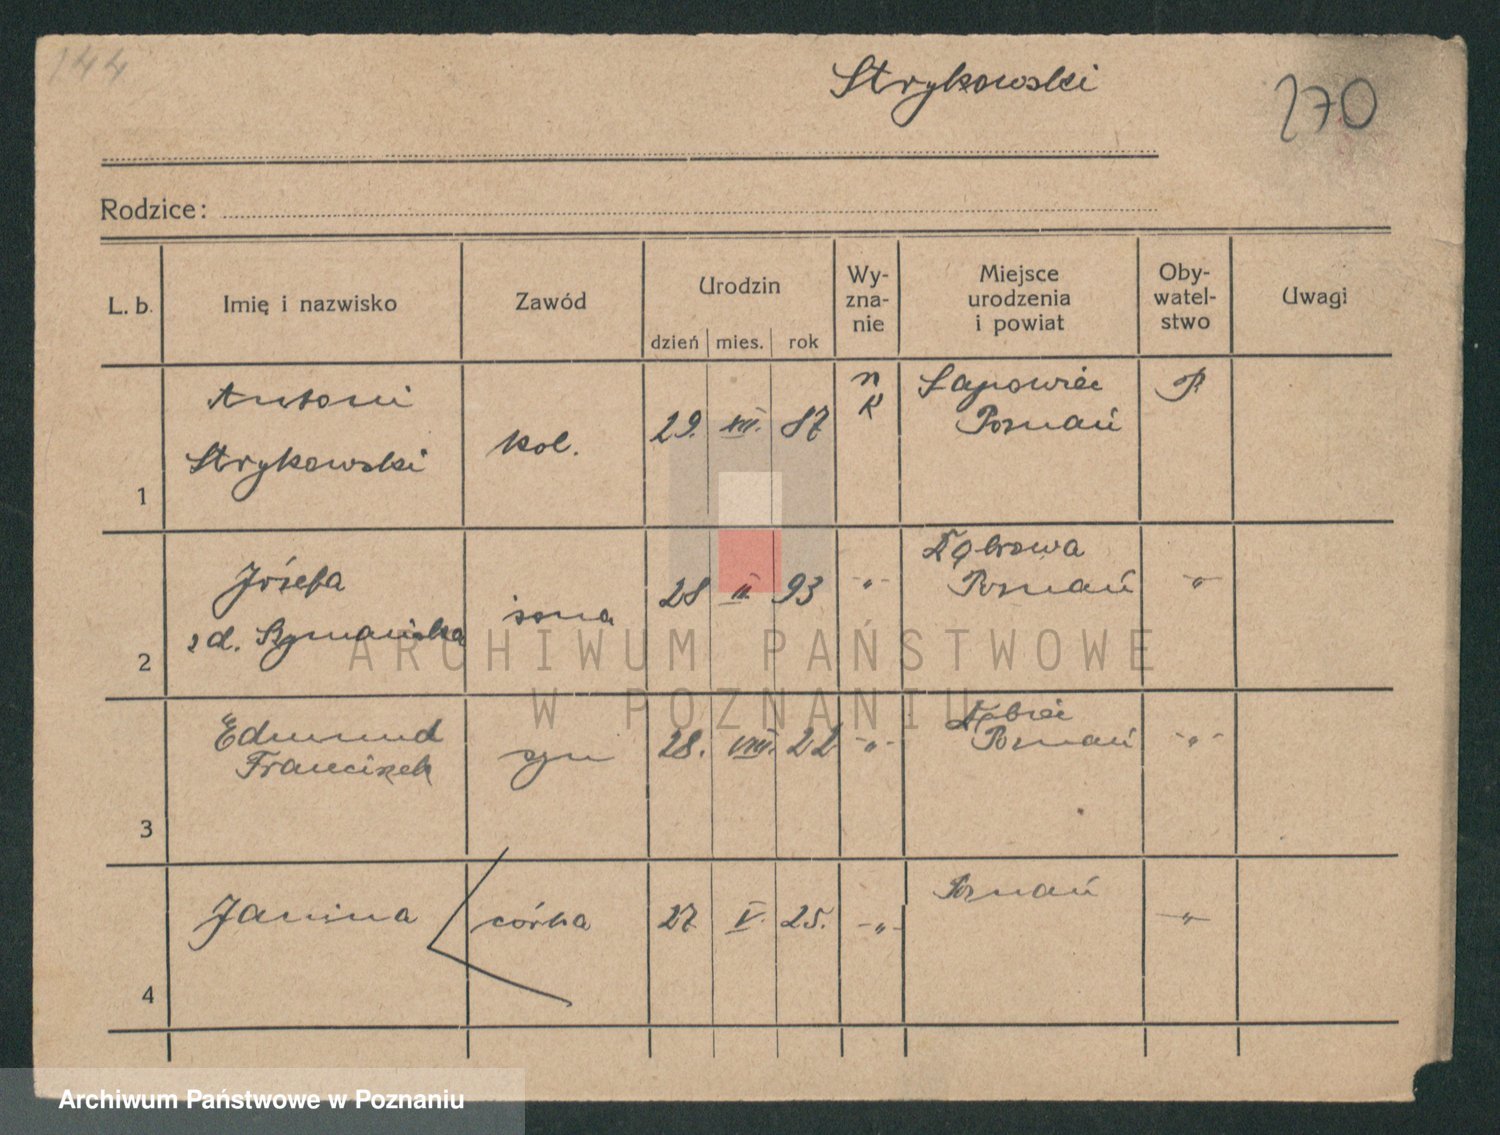 144
Strykowski
270
Rodzice:
L. b.
Imię i nazwisko
Zawód
Urodzin
dzień
mies.
rok
Wy-
zna-
nie
Miejsce
urodzenia
i powiat
Oby-
watel-
stwo
Uwagi
1
Antoni
Strykowski
kol.
29. XII. 87
r
k
Poznań
P.
2
Józefa
z d. Szymańska
żona
28 II. 93
-"-
Dąbrowa
Poznań
-"-
3
Edmund
Franciszek
syn
28. VIII. 22
-"-
Dębiec
Poznań
-"-
4
Janina
córka
27 V. 25.
-"-
Poznań
-"-
ARCHIWUM PAŃSTWOWE
W POZNANIU
Archiwum Państwowe w Poznaniu